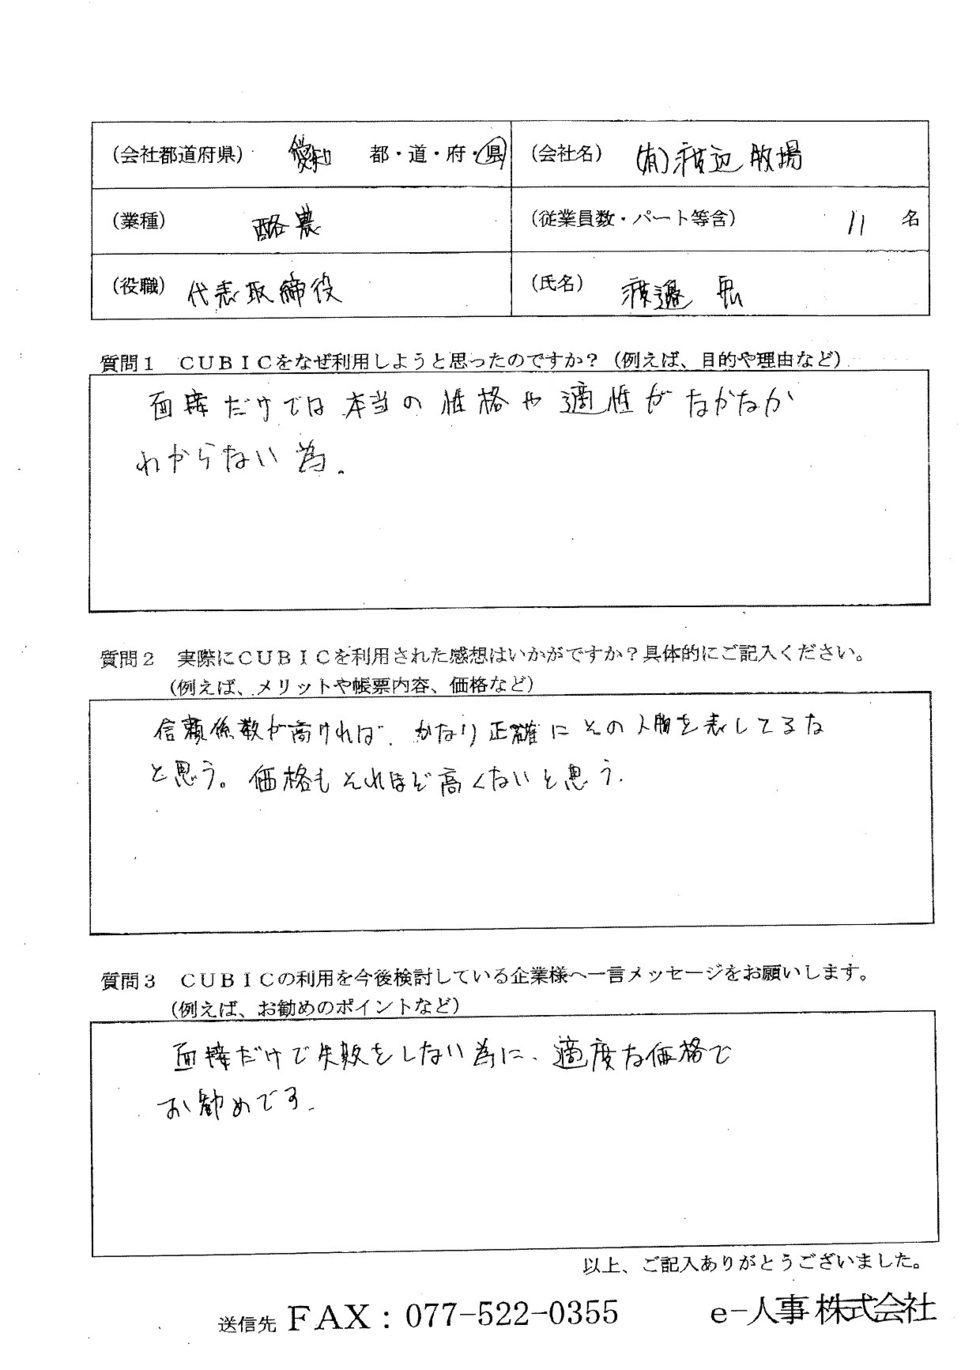 (会社都道府県) 愛知 都・道・府・県
(会社名) (有)渡辺牧場
(業種) 酪農
(従業員数・パート等含) 11 名
(役職) 代表取締役
(氏名) 渡邊
質問1 CUBICをなぜ利用しようと思ったのですか？(例えば、目的や理由など)
面接だけでは本当の性格や適性がなかなか
わからない為.
質問2 実際にCUBICを利用された感想はいかがですか？具体的にご記入ください。
(例えば、メリットや帳票内容、価格など)
信頼係数が高ければ、かなり正確にその人物を表してるな
と思う。価格もそれほど高くないと思う.
質問3 CUBICの利用を今後検討している企業様へ一言メッセージをお願いします。
(例えば、お勧めのポイントなど)
面接だけで失敗をしない為に、適度な価格で
お勧めです.
以上、ご記入ありがとうございました。
送信先 FAX：077-522-0355 e-人事株式会社